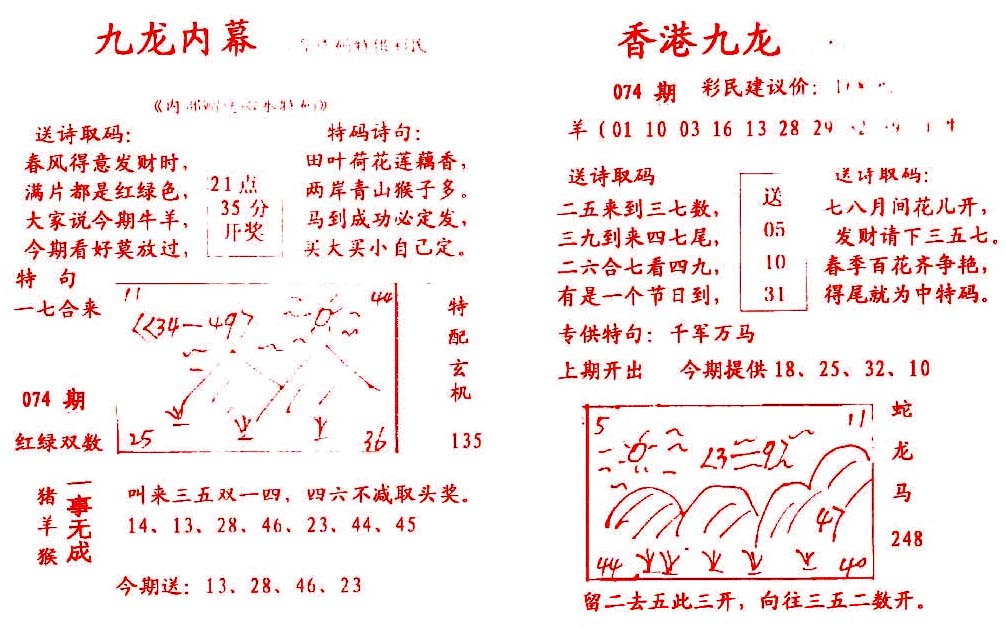 九龙内幕
送诗取码：
春风得意发财时，
满片都是红绿色，
大家说今期牛羊，
今期看好莫放过，
21点
35分
开奖
特码诗句：
田叶荷花莲藕香，
两岸青山猴子多。
马到成功必定发，
买大买小自己定。
特 句
一七合来
074 期
红绿双数
11
44
34一49
25
36
特
配
玄
机
135
猪
羊
猴
一事无成
叫来三五双一四，四六不减取头奖。
14、13、28、46、23、44、45
今期送：13、28、46、23
香港九龙
074 期 彩民建议价：
羊（01 10 03 16 13 28 29
送诗取码
二五来到三七数，
三九到来四七尾，
二六合七看四九，
有是一个节日到，
送
05
10
31
送诗取码：
七八月间花儿开，
发财请下三五七。
春季百花齐争艳，
得尾就为中特码。
专供特句：千军万马
上期开出 今期提供18、25、32、10
5
11
47
44
40
蛇
龙
马
248
留二去五此三开，向往三五二数开。